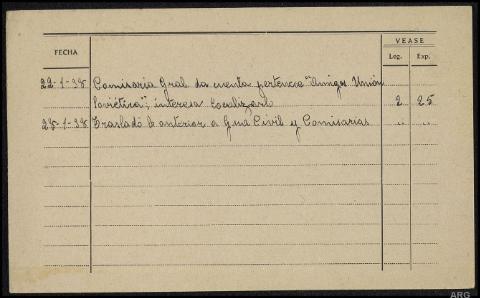 FECHA
VEASE
Leg. Exp.
22-1-38 Comisaria Gral da cuenta pertencia "Amigos Unión
Soviética"; interesa localizarl 2 25
28-1-38 Traslado lo anterior a Gua Civil y Comisarias " "
ARG